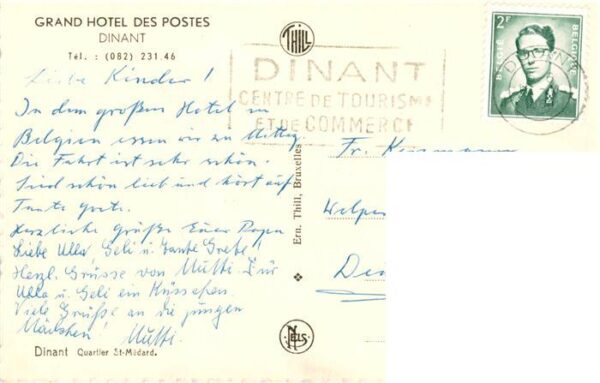 GRAND HOTEL DES POSTES
DINANT
Tél. : (082) 231.46
Liebe Kinder!
In dem großen Hotel in
Belgien essen wir zu Mittag.
Die Fahrt ist sehr schön.
Seid schön lieb und hört auf
Tante Grete.
Herzliche Grüße Euer Papa
Liebe Ulla, Geli u. Tante Grete!
Herzl. Grüsse von Mutti. Für
Ulla u. Geli ein Küsschen.
Viele Grüße an die jungen
Mädchen! Mutti.
Dinant Quartier St-Médard.
THILL
Ern. Thill, Bruxelles
NELS
DINANT
CENTRE DE TOURISME
ET DE COMMERCE
2F
BELGIE
BELGIQUE
DINANT
Fr.